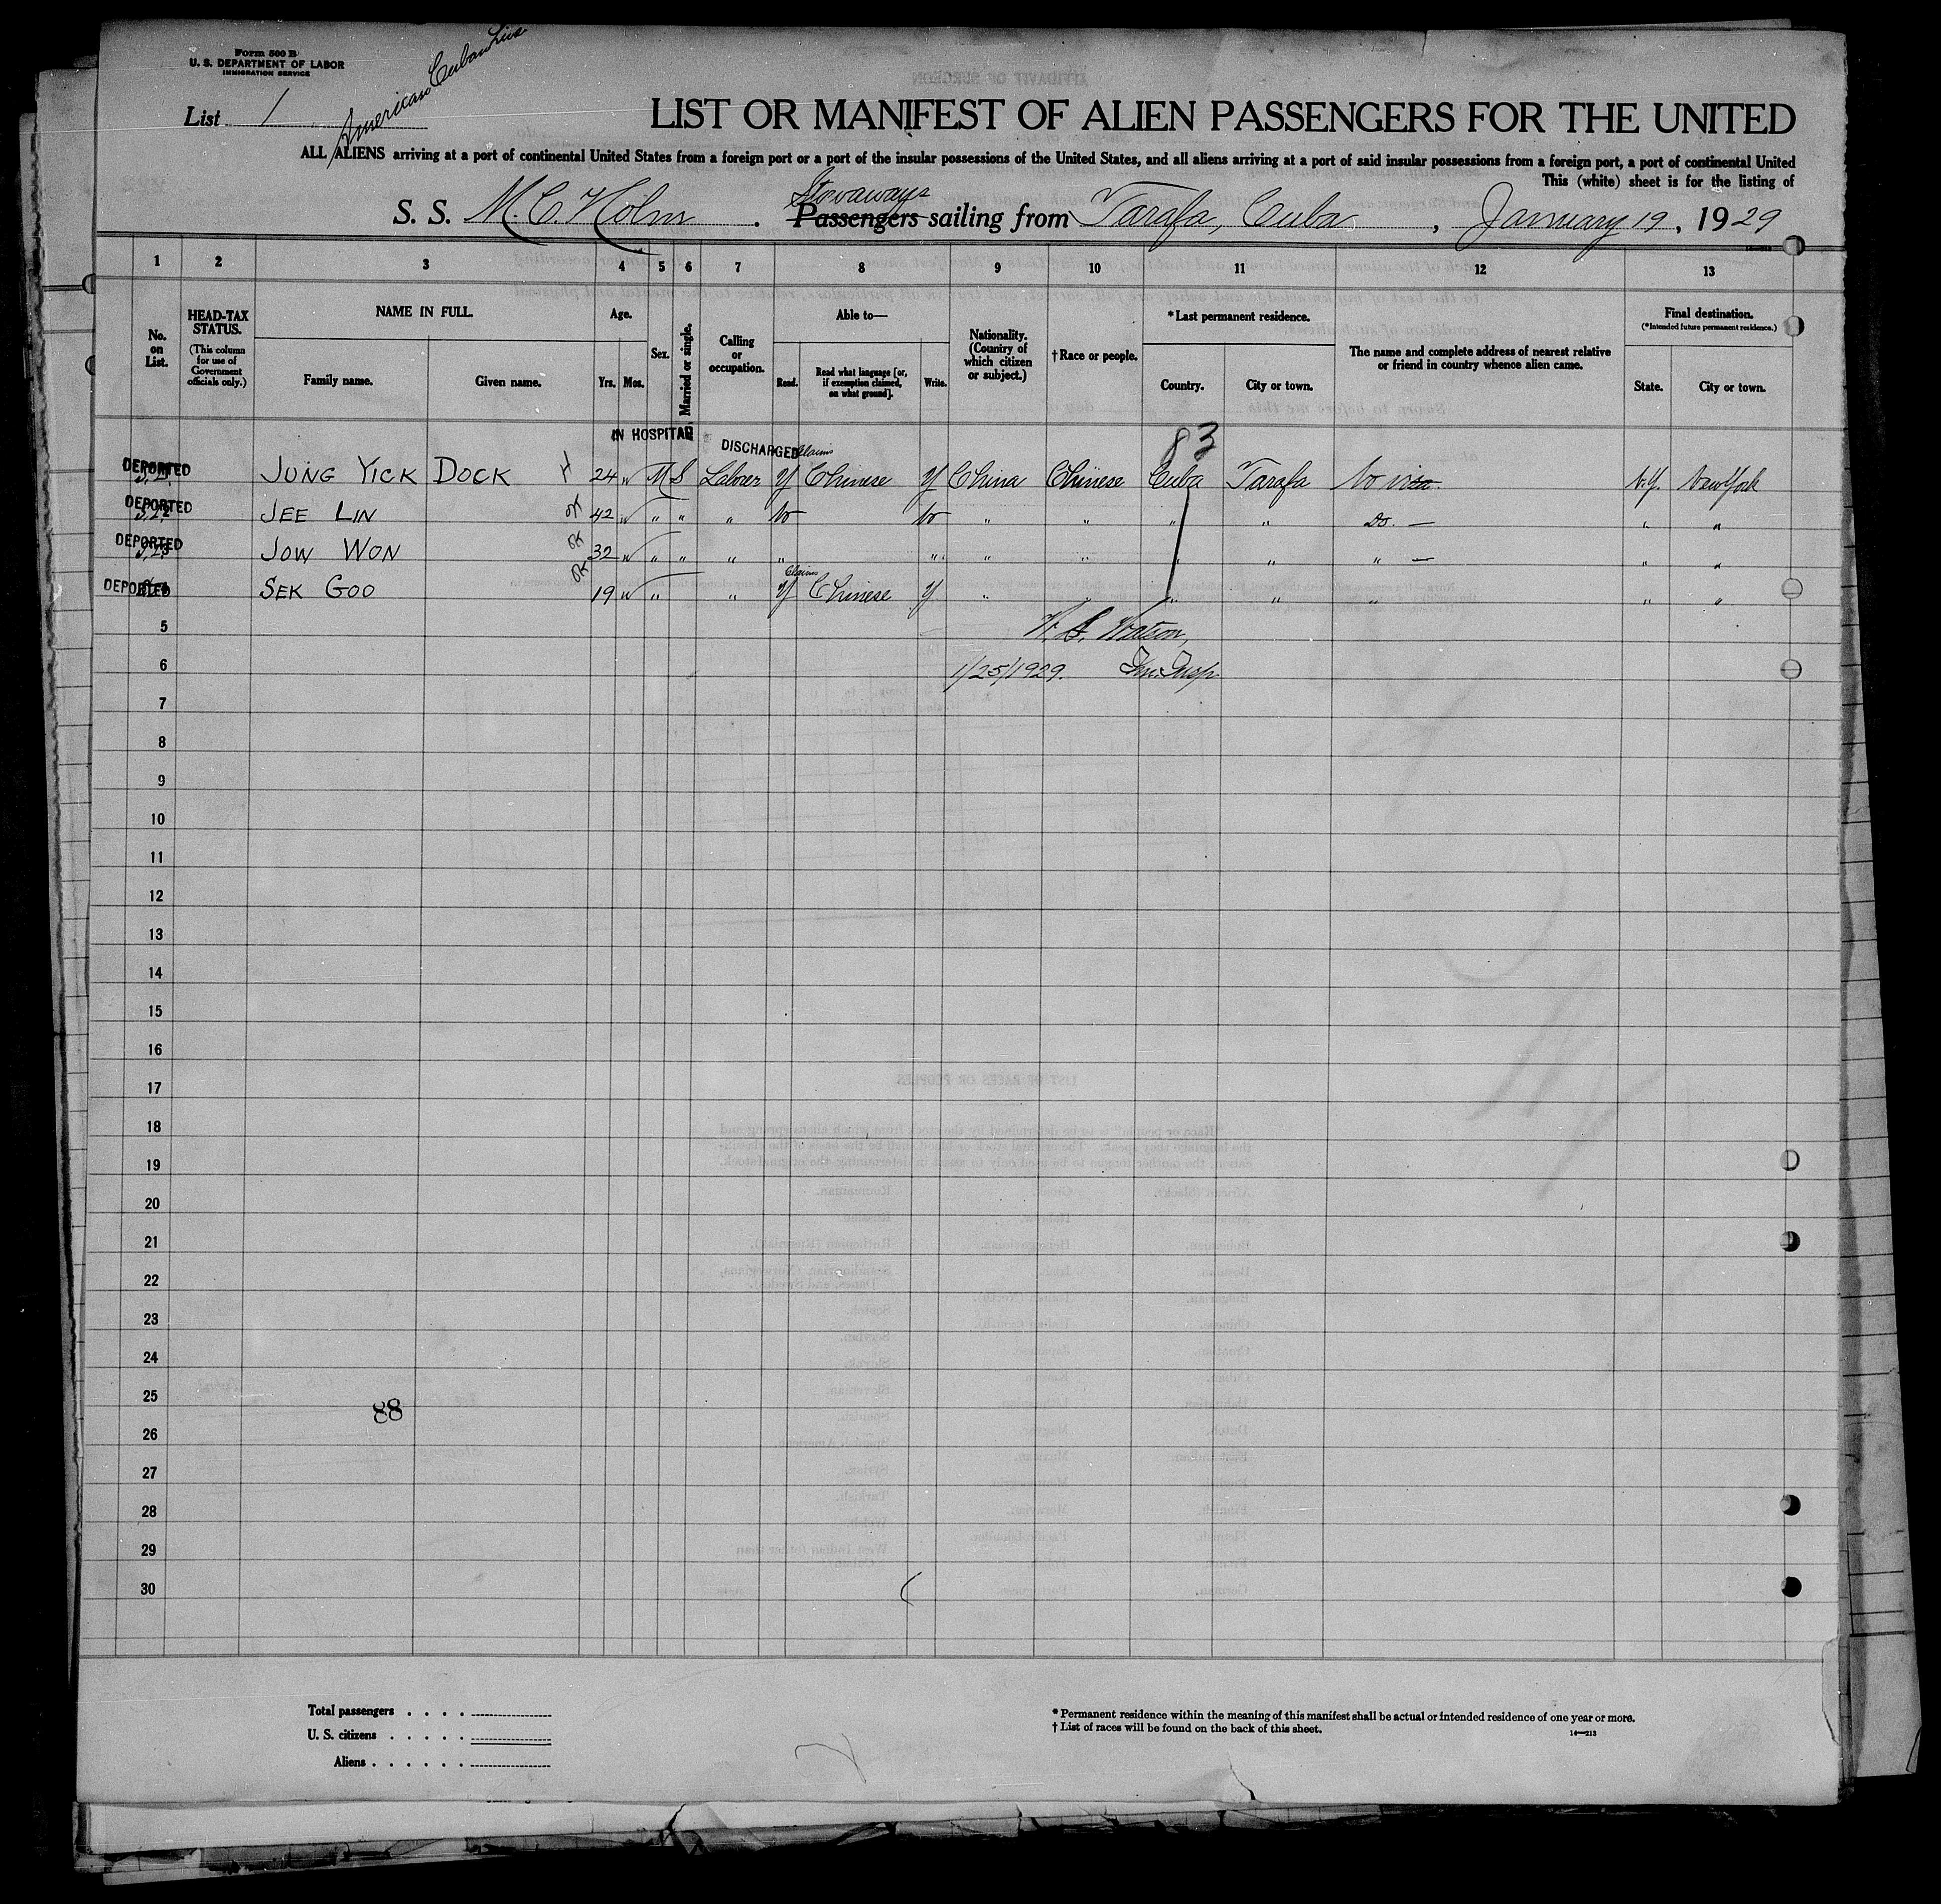 Form 500 B
U. S. DEPARTMENT OF LABOR
IMMIGRATION SERVICE
List 1
American Cuban Line
LIST OR MANIFEST OF ALIEN PASSENGERS FOR THE UNITED
ALL ALIENS arriving at a port of continental United States from a foreign port or a port of the insular possessions of the United States, and all aliens arriving at a port of said insular possessions from a foreign port, a port of continental United
This (white) sheet is for the listing of
Stowaways
S. S. M. C. Holm . Passengers sailing from Tarafa, Cuba , January 19 , 1929
1 2 3 4 5 6 7 8 9 10 11 12 13
No. on List.
HEAD-TAX STATUS. (This column for use of Government officials only.)
NAME IN FULL.
Family name. Given name.
Age.
Yrs. Mos.
Sex.
Married or single.
Calling or occupation.
Able to—
Read. Read what language [or, if exemption claimed, on what ground]. Write.
Nationality. (Country of which citizen or subject.)
† Race or people.
* Last permanent residence.
Country. City or town.
The name and complete address of nearest relative or friend in country whence alien came.
Final destination.
(*Intended future permanent residence.)
State. City or town.
IN HOSPITAL DISCHARGED Claims 83
DEPORTED JUNG YICK DOCK 24 M S Laborer y Chinese y China Chinese Cuba Tarafa N.Y. New York
DEPORTED JEE LIN ok 42 " " " No No " " " " Do. — " "
DEPORTED JOW WON ok 32 " " " " " " " " " " — " "
Claims
DEPORTED SEK GOO ok 19 " " y Chinese y " " " " " " "
5 Watson,
6 1/25/1929. Imm. Insp.
7
8
9
10
11
12
13
14
15
16
17
18
19
20
21
22
23
24
25
88
26
27
28
29
30
Total passengers . . . .
U. S. citizens . . . . .
Aliens . . . . . .
* Permanent residence within the meaning of this manifest shall be actual or intended residence of one year or more.
† List of races will be found on the back of this sheet.
14—213